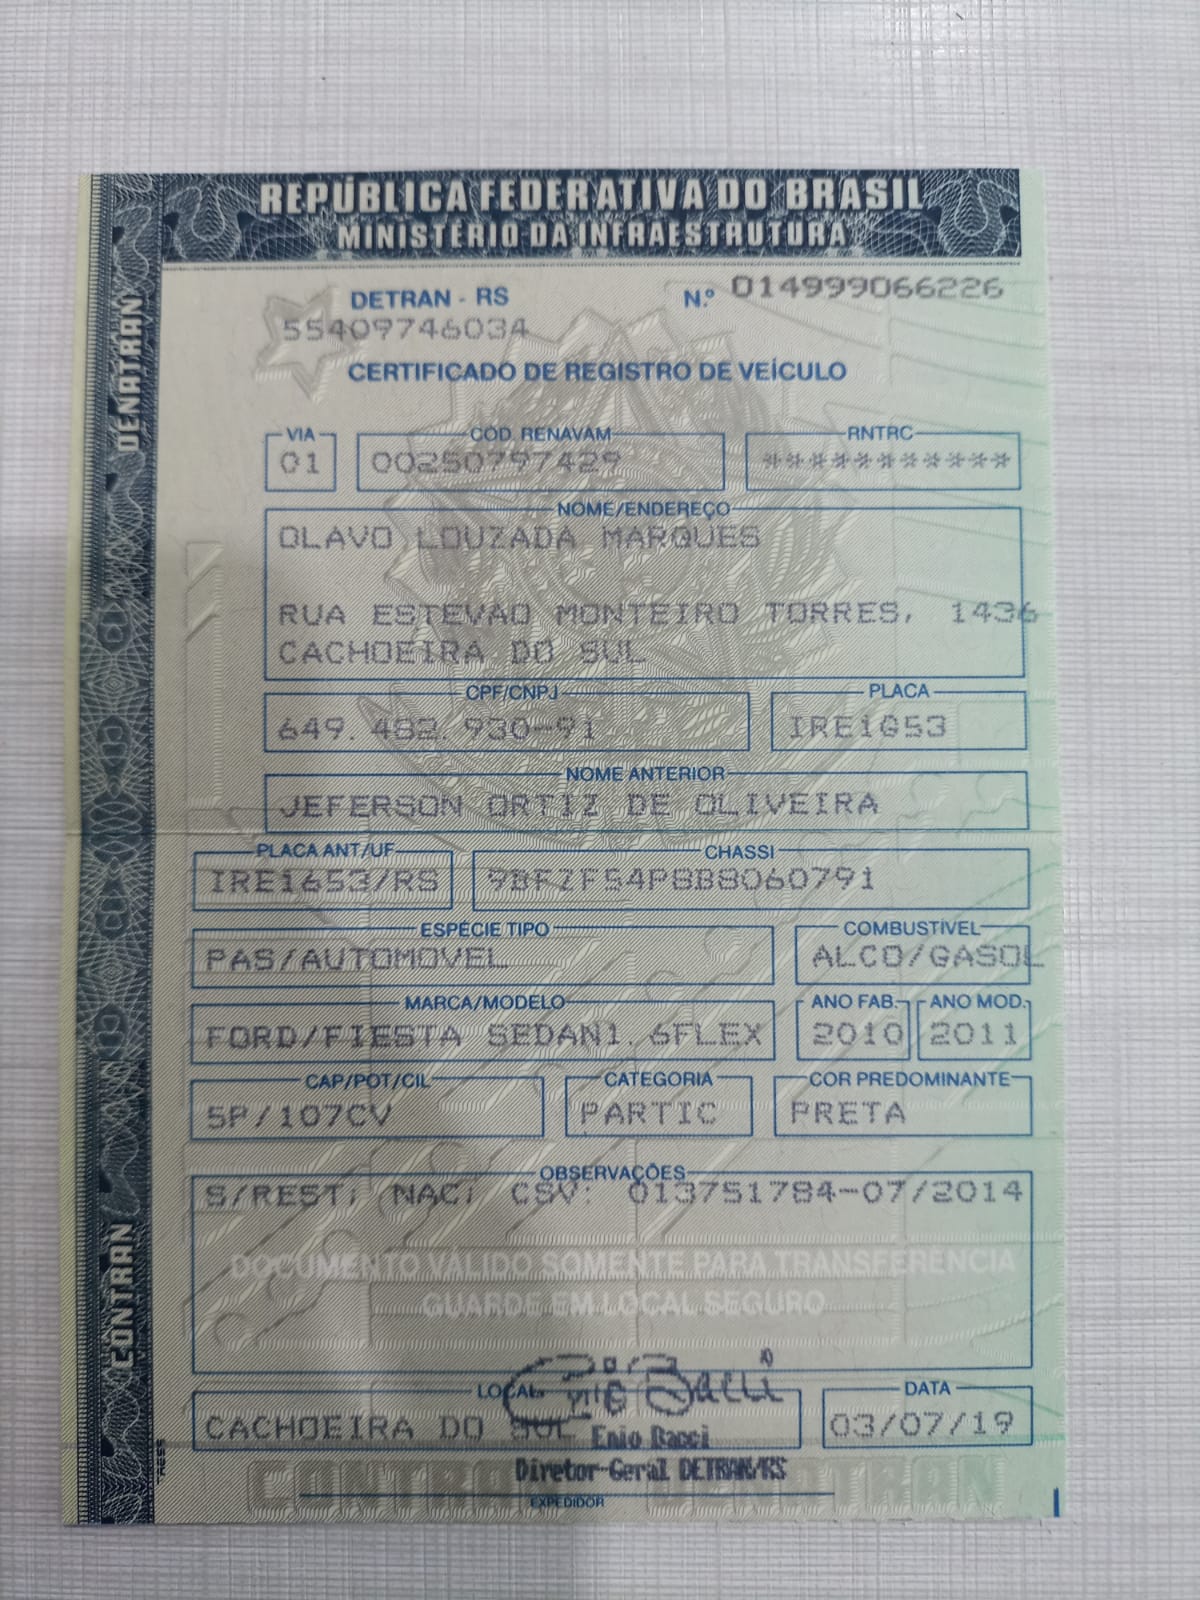 REPÚBLICA FEDERATIVA DO BRASIL
MINISTÉRIO DA INFRAESTRUTURA
DENATRAN
CONTRAN
DETRAN - RS
N.º 014999066226
55409746034
CERTIFICADO DE REGISTRO DE VEÍCULO
VIA
CÓD. RENAVAM
RNTRC
01
00250797429
***********
NOME/ENDEREÇO
OLAVO LOUZADA MARQUES
RUA ESTEVAO MONTEIRO TORRES, 1436
CACHOEIRA DO SUL
CPF/CNPJ
PLACA
649.482.930-91
IRE1G53
NOME ANTERIOR
JEFERSON ORTIZ DE OLIVEIRA
PLACA ANT/UF
CHASSI
IRE1653/RS
9BFZF54P8B8060791
ESPÉCIE TIPO
COMBUSTÍVEL
PAS/AUTOMOVEL
ALCO/GASOL
MARCA/MODELO
ANO FAB.
ANO MOD.
FORD/FIESTA SEDAN1.6FLEX
2010
2011
CAP/POT/CIL
CATEGORIA
COR PREDOMINANTE
5P/107CV
PARTIC
PRETA
OBSERVAÇÕES
S/REST; NAC; CSV: 013751784-07/2014
DOCUMENTO VÁLIDO SOMENTE PARA TRANSFERÊNCIA
GUARDE EM LOCAL SEGURO
LOCAL
DATA
CACHOEIRA DO SUL
03/07/19
Enio Bacci
Diretor-Geral DETRAN/RS
EXPEDIDOR
CONTRAN DENATRAN